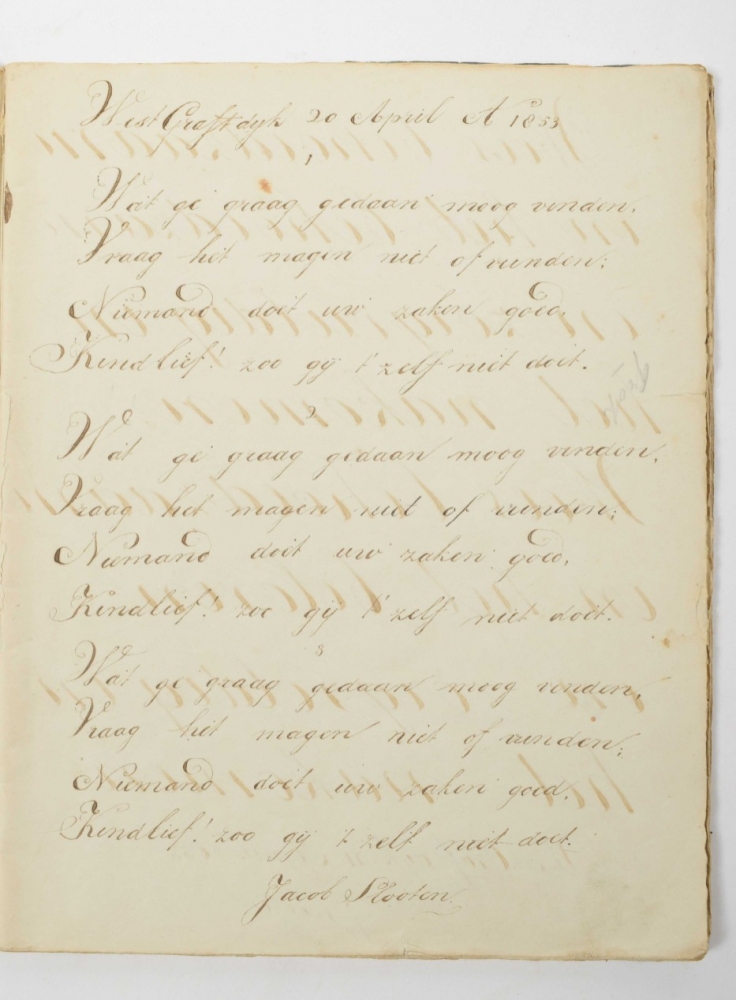 West Graftdyk 20 April A° 1853
1
Wat ge graag gedaan moog vinden,
Vraag het magen niet of vrinden:
Niemand doet uw zaken goed,
Kind lief! zoo gÿ t' zelf niet doet.
2
Wat ge graag gedaan moog vinden,
Vraag het magen niet of vrinden:
Niemand doet uw zaken goed,
Kind lief! zoo gÿ t' zelf niet doet.
3
Wat ge graag gedaan moog vinden,
Vraag het magen niet of vrinden:
Niemand doet uw zaken goed,
Kind lief! zoo gÿ 't zelf niet doet.
Jacob Slooten